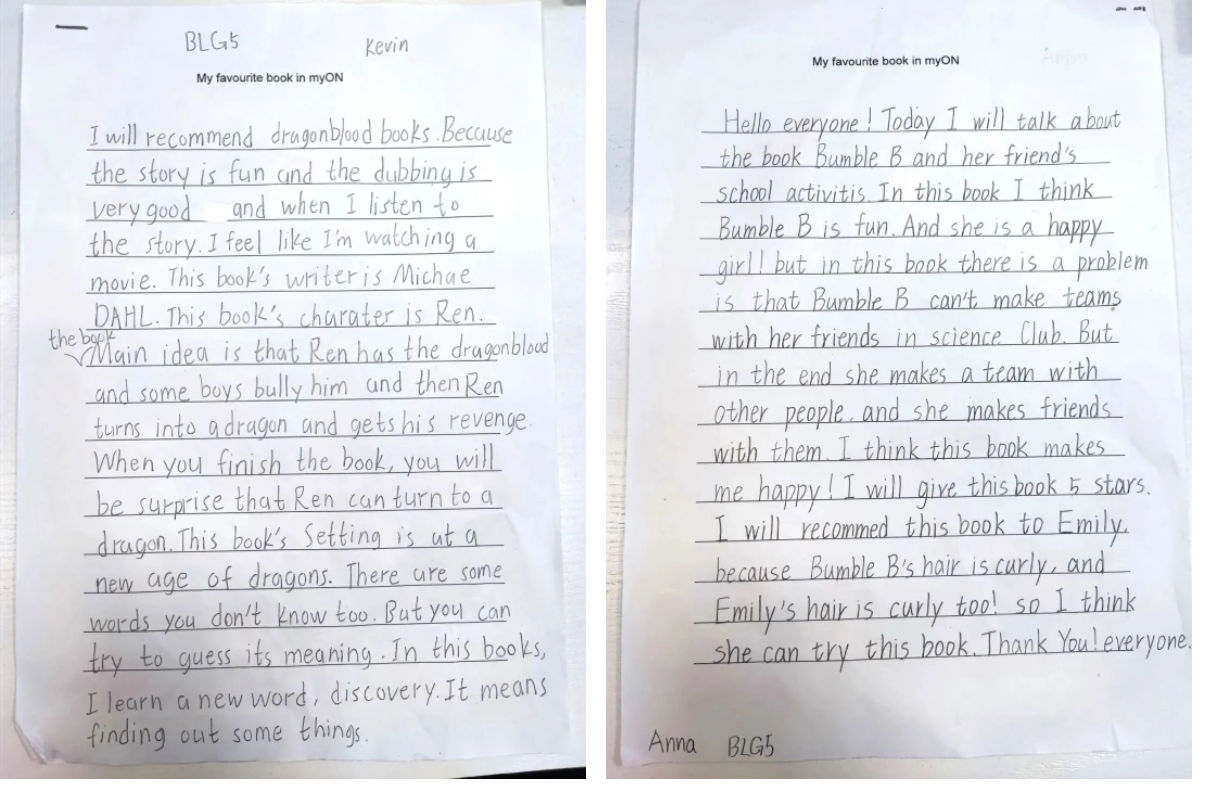 BLG5 Kevin
My favourite book in myON
I will recommend dragonblood books. Because
the story is fun and the dubbing is
very good and when I listen to
the story. I feel like I'm watching a
movie. This book's writer is Michae
DAHL. This book's charater is Ren.
the book
Main idea is that Ren has the dragonblood
and some boys bully him and then Ren
turns into a dragon and gets his revenge.
When you finish the book, you will
be surprise that Ren can turn to a
dragon. This book's Setting is at a
new age of dragons. There are some
words you don't know too. But you can
try to guess its meaning. In this books,
I learn a new word, discovery. It means
finding out some things.
My favourite book in myON
Hello everyone! Today I will talk about
the book Bumble B and her friend's
school activitis. In this book I think
Bumble B is fun. And she is a happy
girl! but in this book there is a problem
is that Bumble B can't make teams
with her friends in science Club. But
in the end she makes a team with
other people. and she makes friends
with them. I think this book makes
me happy! I will give this book 5 stars.
I will recommed this book to Emily.
because Bumble B's hair is curly, and
Emily's hair is curly too! so I think
she can try this book. Thank You! everyone.
Anna BLG5